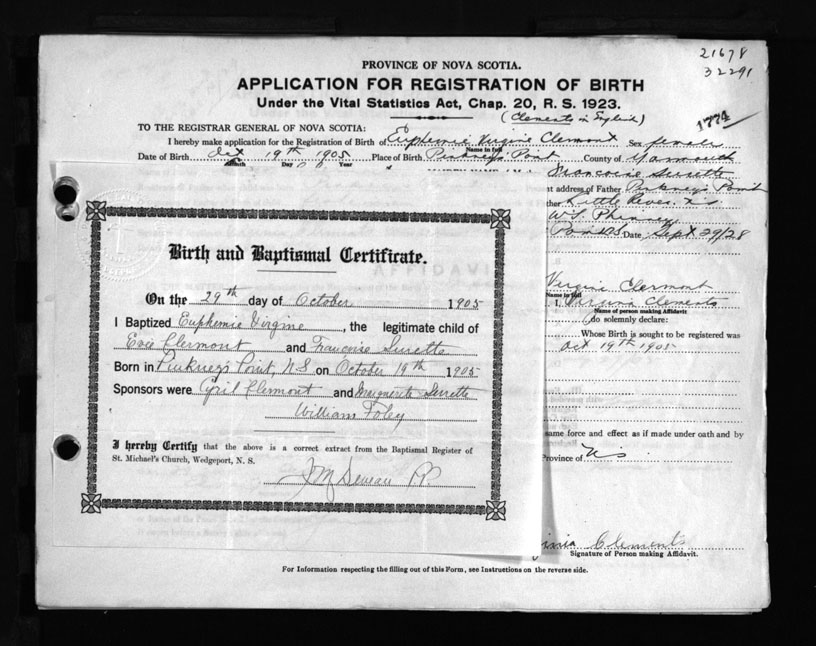 21678
32291
1774
PROVINCE OF NOVA SCOTIA.
APPLICATION FOR REGISTRATION OF BIRTH
Under the Vital Statistics Act, Chap. 20, R. S. 1923.
(Clements in English)
TO THE REGISTRAR GENERAL OF NOVA SCOTIA:
I hereby make application for the Registration of Birth of Euphemie Virgine Clermont Sex female
Name in full
Date of Birth Oct 19th 1905 Place of Birth Pinkney's Point County of Yarmouth
Month Day Year
Francoise Surrette
t address of Father Pinkney's Point
ther Little River, N.S.
W.L.
Date Sept 29/28
Virginie Clermont
Name in full
I, Virginia Clements
Name of person making Affidavit
do solemnly declare:
Whose Birth is sought to be registered was
Oct 19th 1905
same force and effect as if made under oath and by
Province of N.S.
inia Clements
Signature of Person making Affidavit.
For Information respecting the filling out of this Form, see Instructions on the reverse side.
Birth and Baptismal Certificate.
On the 29th day of October 1905
I Baptized Euphemie Virgine, the legitimate child of
Clermont and Francoise Surrette
Born in Pinkney's Point, N S on October 19th 1905
Sponsors were Cyril Clermont and Marguerite Surrette
William Foley
I hereby Certify that the above is a correct extract from the Baptismal Register of
St. Michael's Church, Wedgeport, N. S.